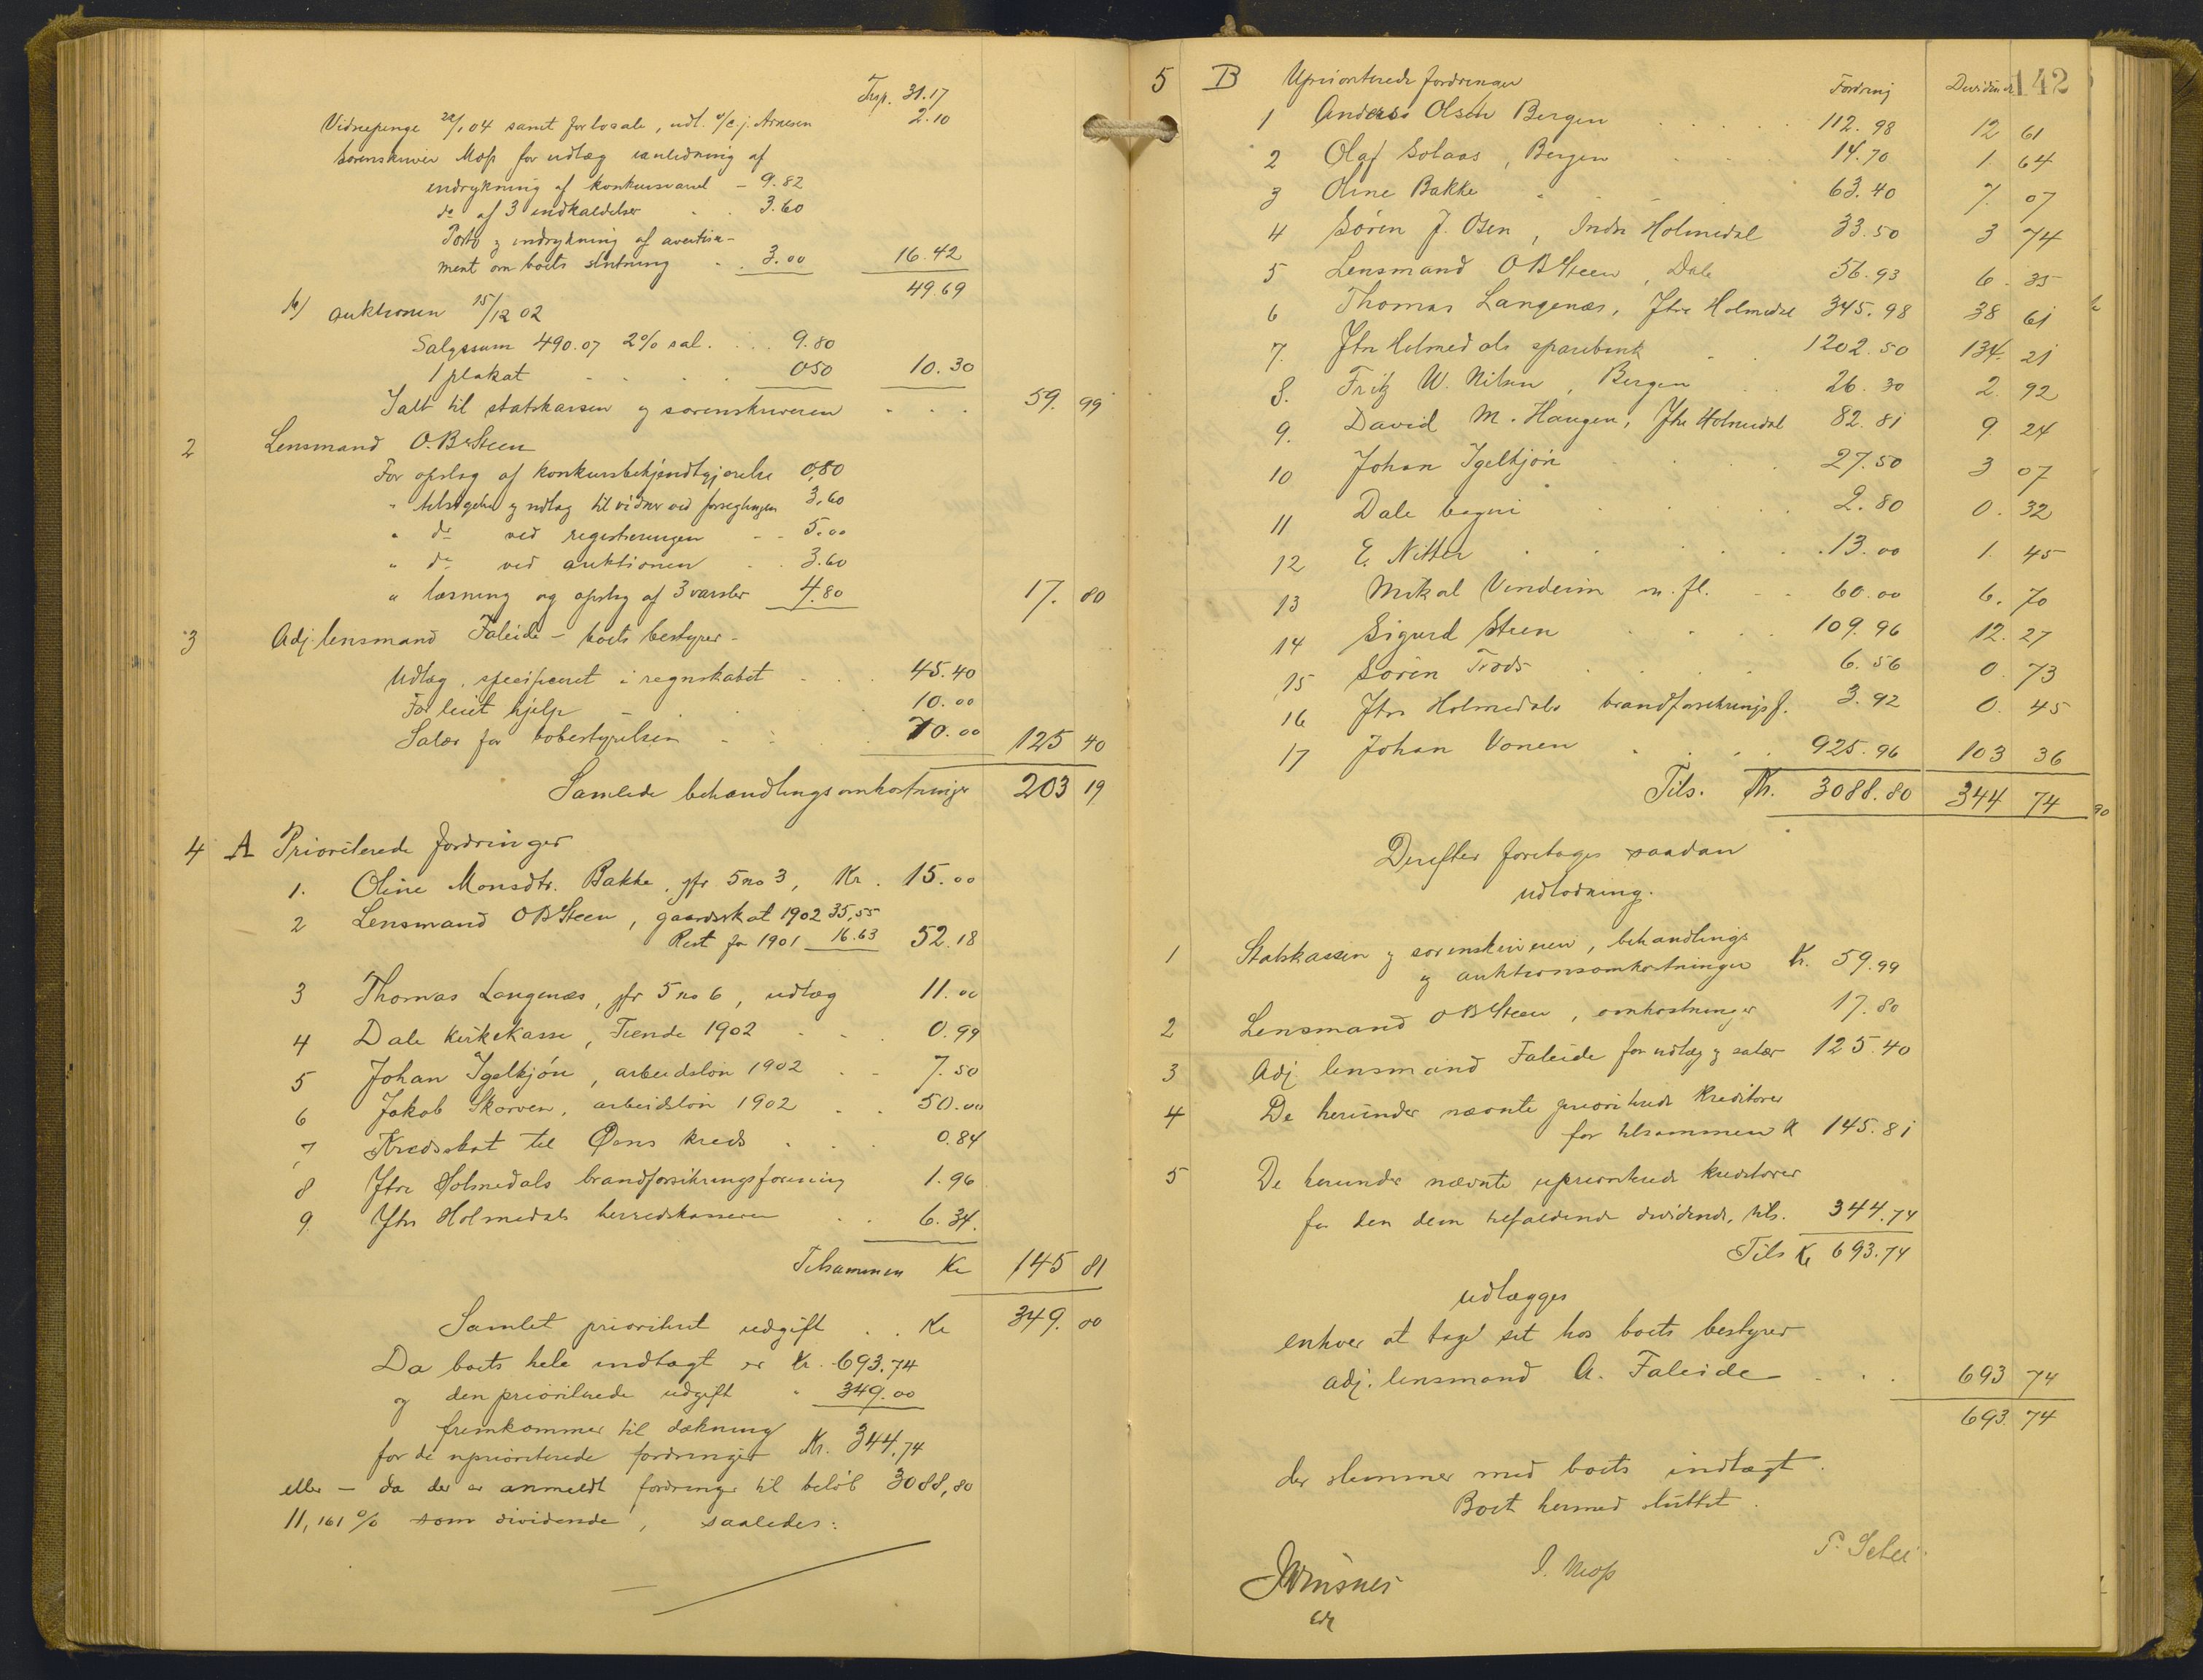 Trsp. 31.17
Vidnepenge 22/1 04 samt for locale, udl. v/c.j. Arnesen 2.10
Sorenskriver Moss for udlæg i anledning af
indrykning af konkursvarsel - 9.82
do af 3 indkaldelser - . 3.60
Porto og indrykning af avertise-
ment om boets slutning - . 3.00 16.42
49.69
b) auktionen 15/12 02
Salgssum 490.07 2% sal. . . . 9.80
1 plakat - . . . 050 10.30
Ialt til statskassen og sorenskriveren - . . . 59. 99
2 Lensmand O. B. Steen
For opslag af konkursbekjendtgjørelse 0,80
" tilsigelse og udlæg til vidner ved forseglingen 3,60
" do ved registreringen - - 5.00
" do ved auktionen - . 3.60
" læsning og opslag af 3 varsler 4.80 17. 80
3 Adj. lensmand Faleide - boets bestyrer -
Udlæg, specificeret i regnskabet - . . 45.40
For leiet hjelp - . . 10.00
Salær for bobestyrelsen - . . . 70.00 125 40
Samlede behandlingsomkostninger 203 19
4 A Prioriterede fordringer
1. Oline Monsdtr. Bakke, jfr 5 no 3, Kr. 15.00
2 Lensmand O B Steen, gaardsskat 1902 35,55
Rest for 1901 16.63 52.18
3 Thomas Langenæs, jfr 5 no 6, udlæg 11.00
4 Dale kirkekasse, Tiende 1902 - . 0.99
5 Johan Igelkjøn, arbeidsløn 1902 . - 7.50
6 Jakob Skorven, arbeidsløn 1902 . . 50.00
7 Kredsskat til Øens kreds . . . 0.84
8 Ytre Holmedals brandforsikringsforening 1.96
9 Ytre Holmedals herredskasserer . . 6.34.
Tilsammen Kr 145 81
Samlet prioritert udgift . . Kr 349. 00
Da boets hele indtægt er Kr. 693.74
og den prioriterede udgift " 349.00
fremkommer til dækning
for de uprioriterede fordringer Kr. 344,74
eller - da der er anmeldt fordringer til beløb 3088,80
11,161 % som dividende, saaledes:
142
5 B Uprioriterede fordringer Fordring Dividende
1 Anders Olsen Bergen . . . . . 112.98 12 61
2 Olaf Solaas, Bergen . . 14.70 1. 64
3 Oline Bakke . . . . 63.40 7. 07
4 Søren J. Osen, Indre Holmedal 33.50 3 74
5 Lensmand O B Steen, Dale 56.93 6. 35
6 Thomas Langenæs, Ytre Holmedal 345.98 38 61
7. Ytre Holmedals sparebank . . 1202.50 134. 21
8. Fritz W. Nilsen, Bergen . . 26.30 2. 92
9. David M. Haugen, Ytre Holmedal 82.81 9. 24
10 Johan Igelkjøn . . . 27.50 3 07
11 Dale bageri . . . . 2.80 0. 32
12 E. Nitter . . . . . 13.00 1. 45
13 Mikal Vinderim m.fl. - - 60.00 6. 70
14 Sigurd Steen . . . . 109.96 12. 27
15 Søren Trods . . . . 6.56 0 73
16 Ytre Holmedals brandforsikringsf. 3.92 0. 45
17 Johan Vonen . . . . 925.96 103 36
Tils. Kr. 3088.80 344 74
Derefter foretages saadan
udlodning.
1 Statskassen og sorenskriveren, behandlings
og auktionsomkostninger Kr. 59.99
2 Lensmand O B Steen, omkostninger 17.80
3 Adj. lensmand Faleide for udlæg og salær 125.40
4 De herunder nævnte prioriterede kreditorer
for tilsammen Kr 145.81
5 De herunder nævnte uprioriterede kreditorer
for den dem tilfaldende dividende, tils. 344.74
Tils Kr 693.74
udlægges
enhver at tage sit hos boets bestyrer
adj. lensmand A. Faleide - . . 693 74
693. 74
der stemmer med boets indtægt.
Boet hermed sluttet.
I. Moss